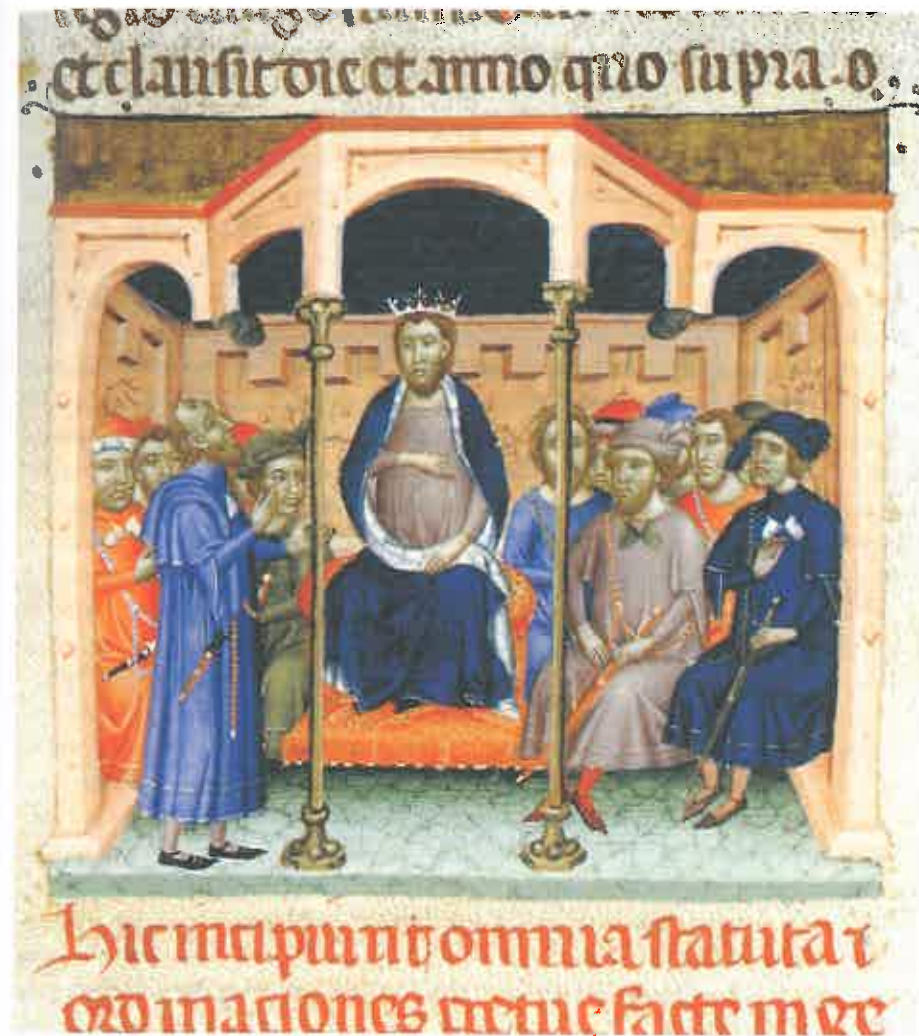 et clausit die et anno quo supra. o
Hic incipiunt omnia statuta ⁊
ordinaciones facte in ge